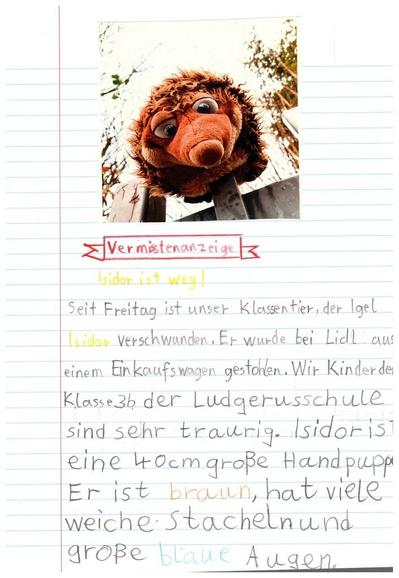 Vermistenanzeige
Isidor ist weg!
Seit Freitag ist unser Klassentier, der Igel
Isidor verschwunden. Er wurde bei Lidl aus
einem Einkaufswagen gestohlen. Wir Kinder der
Klasse 3b der Ludgerusschule
sind sehr traurig. Isidor ist
eine 40cm große Handpuppe
Er ist braun, hat viele
weiche Stacheln und
große blaue Augen.